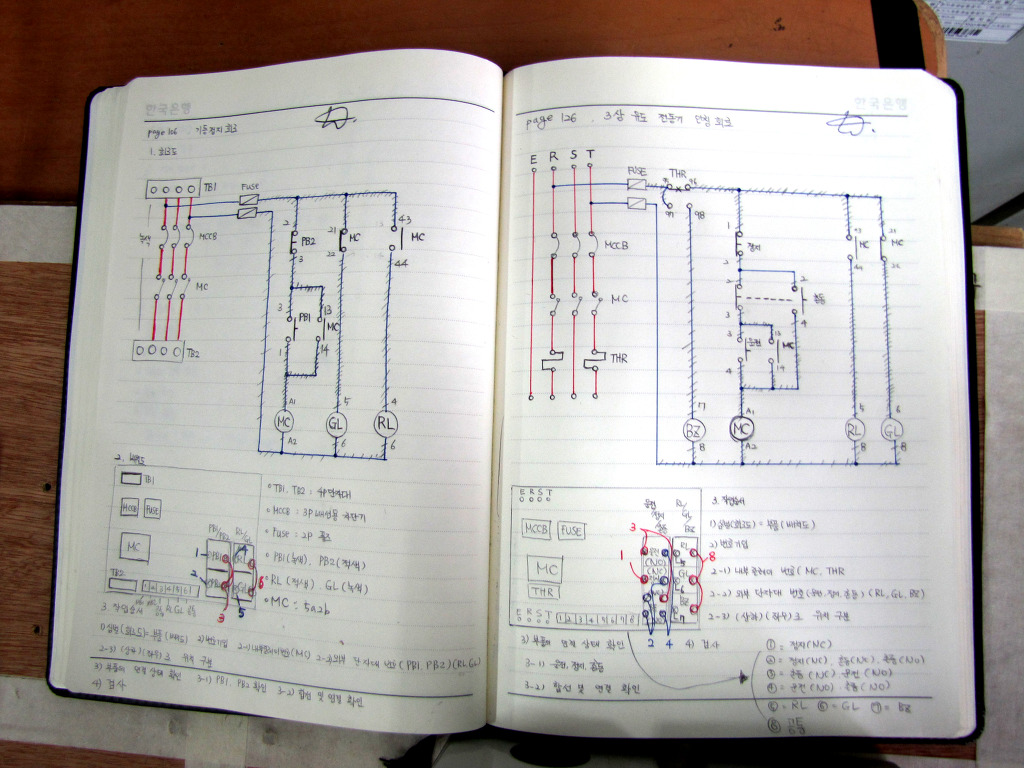 한국은행
page 106 . 기동정지 회로
1. 회로도
TB1
FUSE
MCCB
MC
TB2
2
PB2
3
21
MC
22
43
MC
44
3
PB1
1
13
MC
14
A1
MC
A2
5
GL
6
4
RL
6
2. 배치도
TB1
MCCB
FUSE
MC
TB2
PB1
PB2
RL
GL
1
2
3
4
5
6
1 2 3 4 5 6
• TB1, TB2 : 4P 단자대
• MCCB : 3P 배선용 차단기
• Fuse : 2P 퓨즈
• PB1(녹색) PB2(적색)
• RL(적색) GL(녹색)
• MC : 5a2b
3. 작업순서
1) 심벌(회로도)=부품(배치도) 2) 번호기입 2-1) 내부클리어번호(MC) 2-2) 외부 단자대 번호(PB1, PB2)(RL, GL)
2-3) (상하)(좌우)로 위치 구분
3) 부품의 연결 상태 확인 3-1) PB1, PB2 확인 3-2) 합선 및 연결 확인
4) 검사
한국은행
page 126 . 3상 유도 전동기 회로
E R S T
FUSE
THR
95 96
97 98
MCCB
MC
THR
1
정지
2
2
3
촌동
2
4
3
운전
4
13
MC
14
43
MC
44
21
MC
22
7
BZ
8
A1
MC
A2
5
RL
8
6
GL
8
E R S T
MCCB
FUSE
MC
THR
E R S T
1 2 3 4 5 6 7 8
운전
정지
촌동
RL
GL
BZ
(NO)
(NC)
1
3
8
2 4
3. 작업순서
1) 심벌(회로도) = 부품(배치도)
2) 번호기입
2-1) 내부클리어 번호(MC, THR
2-2) 외부 단자대 번호(운전, 정지, 촌동)(RL, GL, BZ)
2-3) (상하)(좌우)로 위치 구분
3) 부품의 연결 상태 확인 4) 검사
3-1) 운전, 정지, 촌동
3-2) 합선 및 연결 확인
① = 정지(NC)
② = 정지(NC). 촌동(NC). 촌동(NO)
③ = 촌동(NC). 운전(NO)
④ = 운전(NO). 촌동(NO)
⑤ = RL ⑥ = GL ⑦ = BZ
⑧ 공통